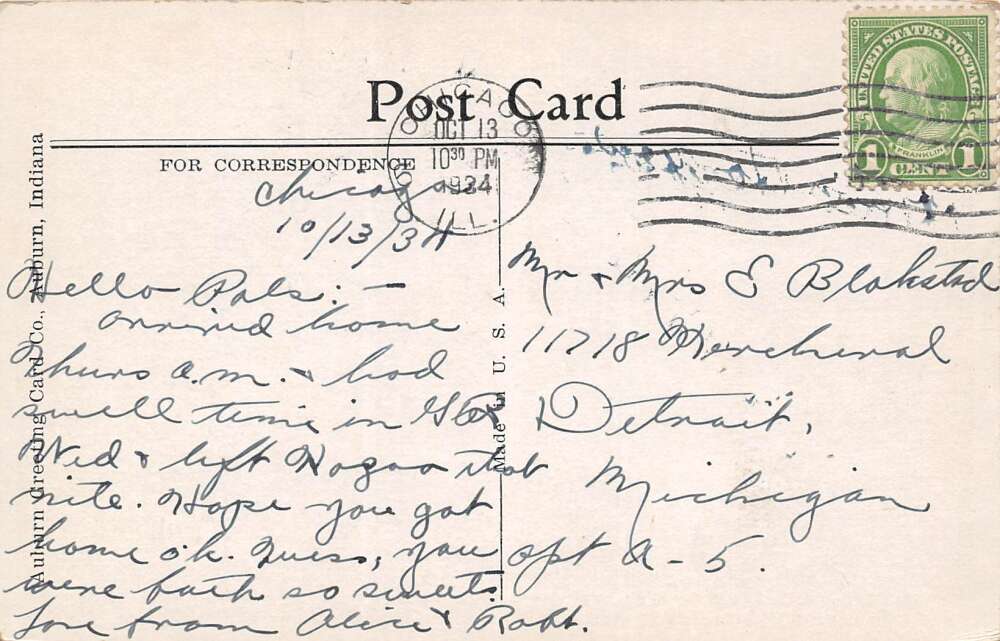 Post Card
FOR CORRESPONDENCE
CHICAGO
OCT 13
10 30 PM
1934
ILL.
UNITED STATES POSTAGE
FRANKLIN
1 CENT 1
Auburn Greeting Card Co., Auburn, Indiana
Made in U. S. A.
Chicago
10/13/34
Hello Pals: —
arrived home
Thurs a.m. & had
swell time in
Wed & left that
nite. Hope you got
home o.k. Guess, you
were both so sweet.
Love from Alice & Robt.
Mr & Mrs E Blakstad
11718 Kercheval
Detroit,
Michigan
apt A-5.